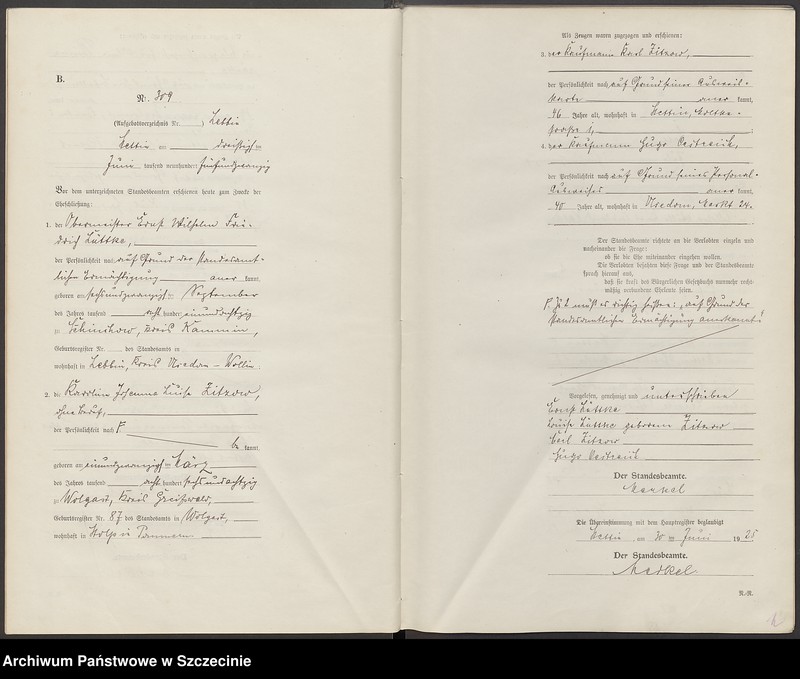 B.
Nr. 309
(Aufgebotsverzeichnis Nr. )
Stettin am dreißigsten
Juni tausend neunhundert fünfundzwanzig
Vor dem unterzeichneten Standesbeamten erschienen heute zum Zwecke der
Eheschließung:
1. der Obermeister Ernst Wilhelm Frie-
drich Lüttke,
der Persönlichkeit nach auf Grund der standesamt-
lichen Ermächtigung aner kannt,
geboren am sechsundzwanzigsten September
des Jahres tausend acht hundert einundachtzig
zu Kreis Kammin,
Geburtsregister Nr. des Standesamts in
wohnhaft in Lebbin, Kreis Usedom-Wollin.
2. die Karoline Johanna Luise Zitzow,
ohne Beruf,
der Persönlichkeit nach F
be kannt,
geboren am einundzwanzigsten März
des Jahres tausend acht hundert sechsundachtzig
zu Wolgast, Kreis Greifswald,
Geburtsregister Nr. 87 des Standesamts in Wolgast,
wohnhaft in Stolp in Pommern.
Als Zeugen waren zugezogen und erschienen:
3. der Kaufmann Karl Zitzow,
der Persönlichkeit nach auf Grund seiner Ausweis-
karte aner kannt,
46 Jahre alt, wohnhaft in Stettin, Moltke-
straße 1,
4. der Kaufmann Hugo
der Persönlichkeit nach auf Grund seines Personal-
Ausweises aner kannt,
40 Jahre alt, wohnhaft in Usedom, Markt 24.
Der Standesbeamte richtete an die Verlobten einzeln und
nacheinander die Frage:
ob sie die Ehe miteinander eingehen wollen.
Die Verlobten bejahten diese Frage und der Standesbeamte
sprach hierauf aus,
daß sie kraft des Bürgerlichen Gesetzbuchs nunmehr recht-
mäßig verbundene Eheleute seien.
F Zu 2 muß es richtig heißen: "auf Grund der
standesamtlichen Ermächtigung anerkannt."
Vorgelesen, genehmigt und unterschrieben
Ernst Lüttke
Luise Lüttke geborene Zitzow
Karl Zitzow
Hugo
Der Standesbeamte.
Merkel
Die Übereinstimmung mit dem Hauptregister beglaubigt
Stettin, am 30 ten Juni 1925
Der Standesbeamte.
Merkel
N.-R.
Archiwum Państwowe w Szczecinie